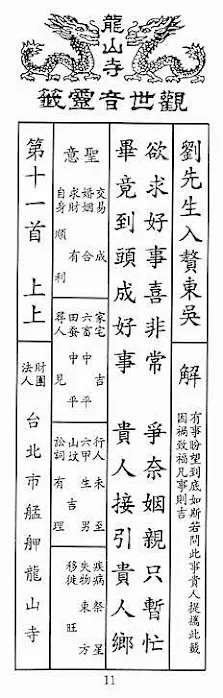 龍山寺
觀世音靈籤
劉先生入贅東吳
解
有事盼望到底如斯若問此事貴人提攜此籤
因禍致福凡事則吉
欲求好事喜非常 爭奈姻親只暫忙
畢竟到頭成好事 貴人接引貴人鄉
聖意
交易 成
婚姻 合
求財 有
自身 順利
家宅 吉
六畜 中平
田蠶 中平
尋人 見
行人 未至
六甲 生男
山墳 吉
訟詞 有理
疾病 祭星
失物 東方
移徙 旺
第十一首 上上
財團
法人
台北市艋舺龍山寺
11